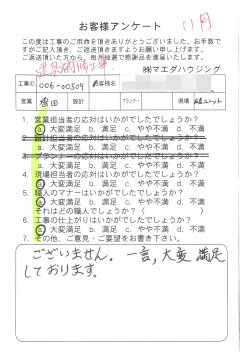 お客様アンケート
11月
この度は工事のご用命を頂きありがとうございました。お手数で
すがご記入頂き、ご返送頂きますようお願い申し上げます。
ご返送頂いた方から、毎月抽選で感謝品を進呈いたします。
㈱マエダハウジング
工事ID 006-00509 お客様名
営業 プランナー 現場
1. 営業担当者の応対はいかがでしたでしょうか?
a. 大変満足 b. 満足 c. やや不満 d. 不満
2. 設計担当者の応対はいかがでしたでしょうか?
a. 大変満足 b. 満足 c. やや不満 d. 不満
3. プランナーの応対はいかがでしたでしょうか?
a. 大変満足 b. 満足 c. やや不満 d. 不満
4. 現場担当者の応対はいかがでしたでしょうか?
a. 大変満足 b. 満足 c. やや不満 d. 不満
5. 職人のマナーはいかがでしたでしょうか?
a. 大変満足 b. 満足 c. やや不満 d. 不満
それはどの職人でしょうか?( )
6. 工事の仕上がりはいかがでしたでしょうか?
a. 大変満足 b. 満足 c. やや不満 d. 不満
7. その他、ご意見・ご要望をお書き下さい。
ございません。一言,大変 満足
しております。